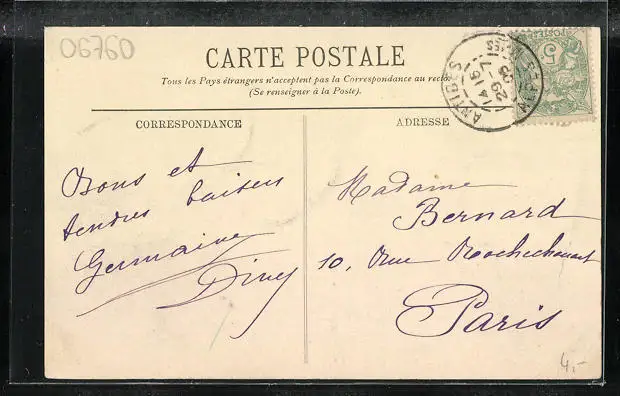 06760
CARTE POSTALE
Tous les Pays étrangers n'acceptent pas la Correspondance au recto
(Se renseigner à la Poste).
ANTIBES
14 15
29 -7
05
ALPES
POSTES
5
CORRESPONDANCE
ADRESSE
Bons et
tendres baisers
Germaine
Madame
Bernard
10, Rue Rochechouart
Paris
4,-